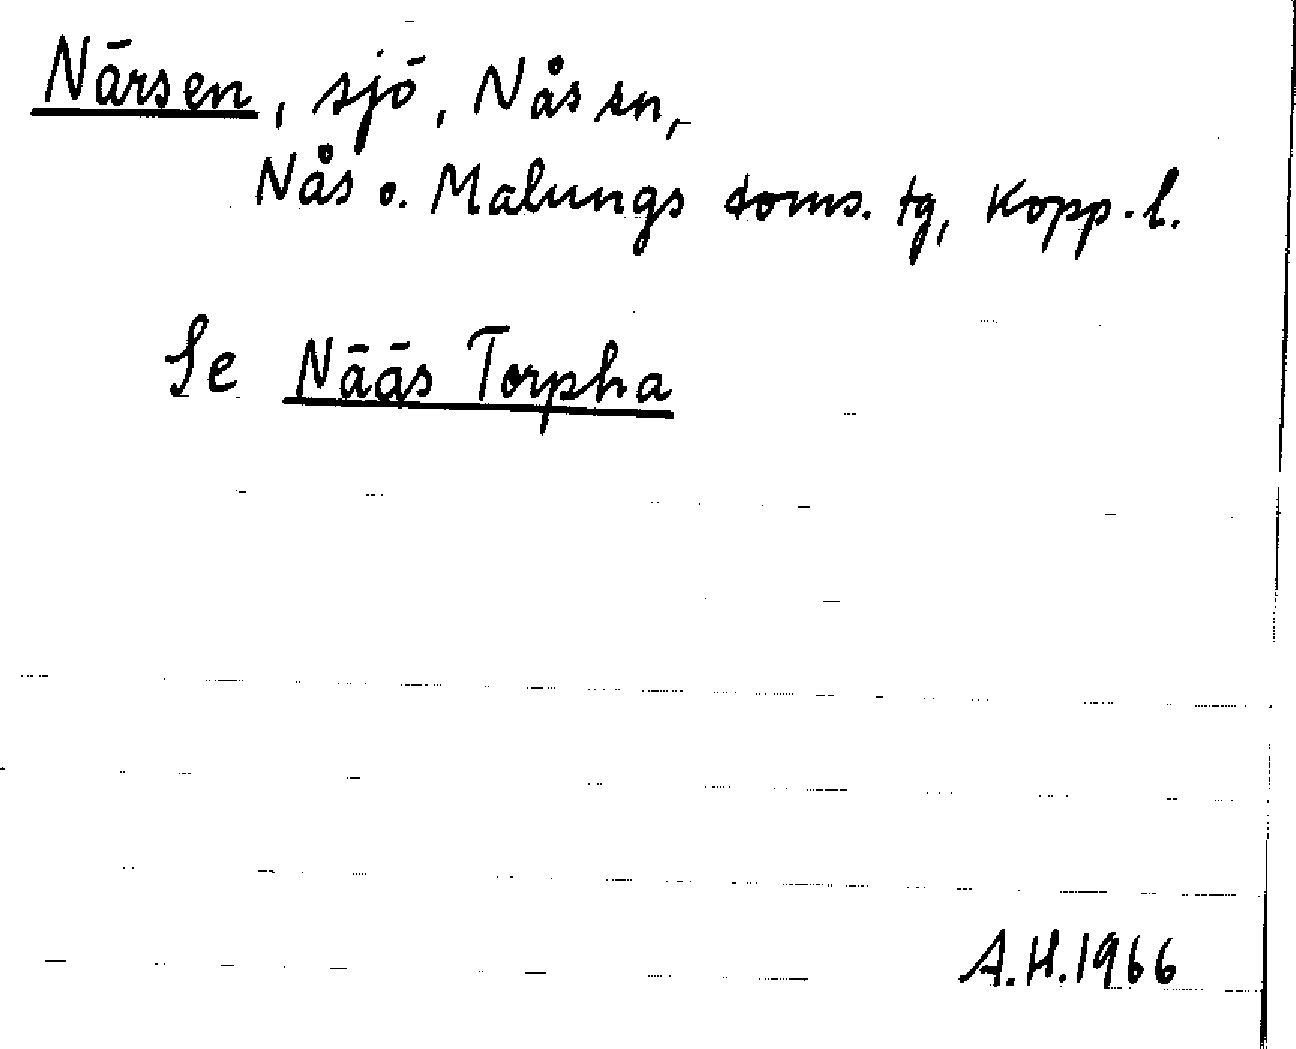 Närsen, sjö, Nås sn,
Nås o. Malungs doms. tg, Kopp. l.
Se Nääs Torpha
A.H. 1966